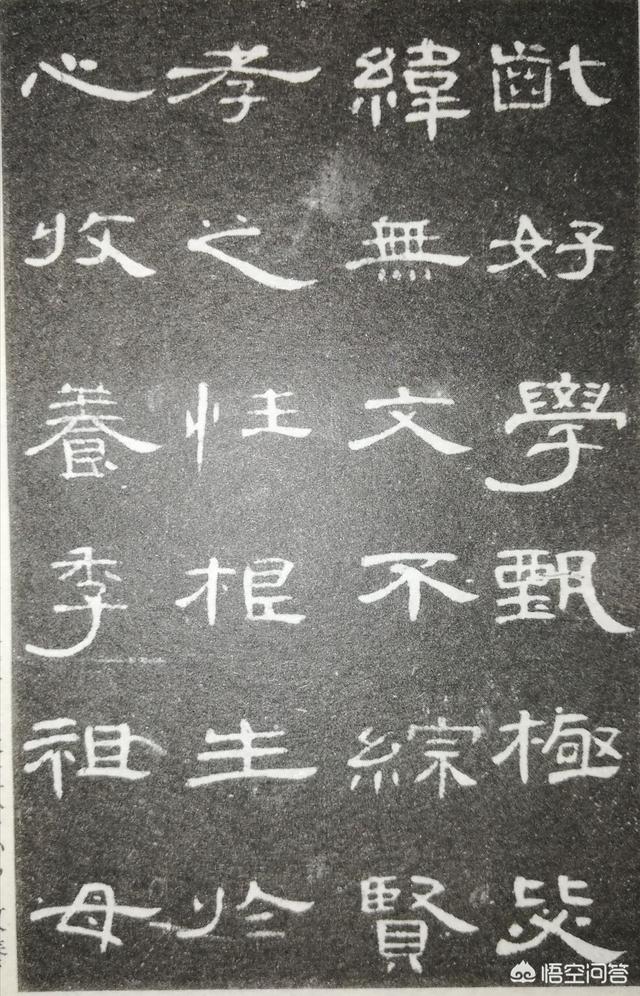 齔好學甄極毖
緯無文不綜賢
孝之性根生於
心收養季祖母
悟空问答